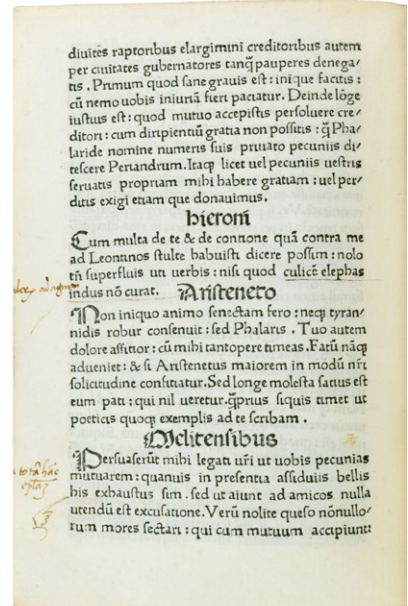 diuites raptoribus elargimini creditoribus autem
per ciuitates gubernatores tanq̃ pauperes denega/
tis . Primum quod sane grauis est : inique facitis :
cũ nemo uobis iniuriã fieri paciatur. Deinde lõge
iustius est : quod mutuo accepistis persoluere cre/
ditori : cum diripientiũ gratia non possitis : q̃ Pha/
laride nomine numeris suis priuato pecuniis di/
tescere Periandrum. Itaq; licet uel pecuniis uestris
seruatis propriam mihi habere gratiam : uel per/
ditis exigi etiam que donauimus.
hieroni
Cum multa de te & de contione quã contra me
ad Leontinos stulte habuisti dicere possim : nolo
tñ superfluis uti uerbis : nisi quod culicẽ elephas
indus nõ curat. Aristeneto
Non iniquo animo senectam fero : neq; tyran/
nidis robur consenuit : sed Phalaris . Tuo autem
dolore afficior : cũ mihi tantopere timeas. Fatũ nãq;
adueniet : & si Aristenetus maiorem in modũ nr̃i
solicitudine conficiatur. Sed longe molesta satius est
eum pati : qui nil ueretur. q̃prius siquis timet ut
poeticis quoq; exemplis ad te scribam .
Melitensibus
Persuaserũt mihi legati ur̃i ut uobis pecunias
mutuarem : quanuis in presentia assiduis bellis
his exhaustus sim . sed ut aiunt ad amicos nulla
utendũ est excusatione. Verũ nolite queso nõnullo/
rum mores sectari : qui cum mutuum accipiunt: